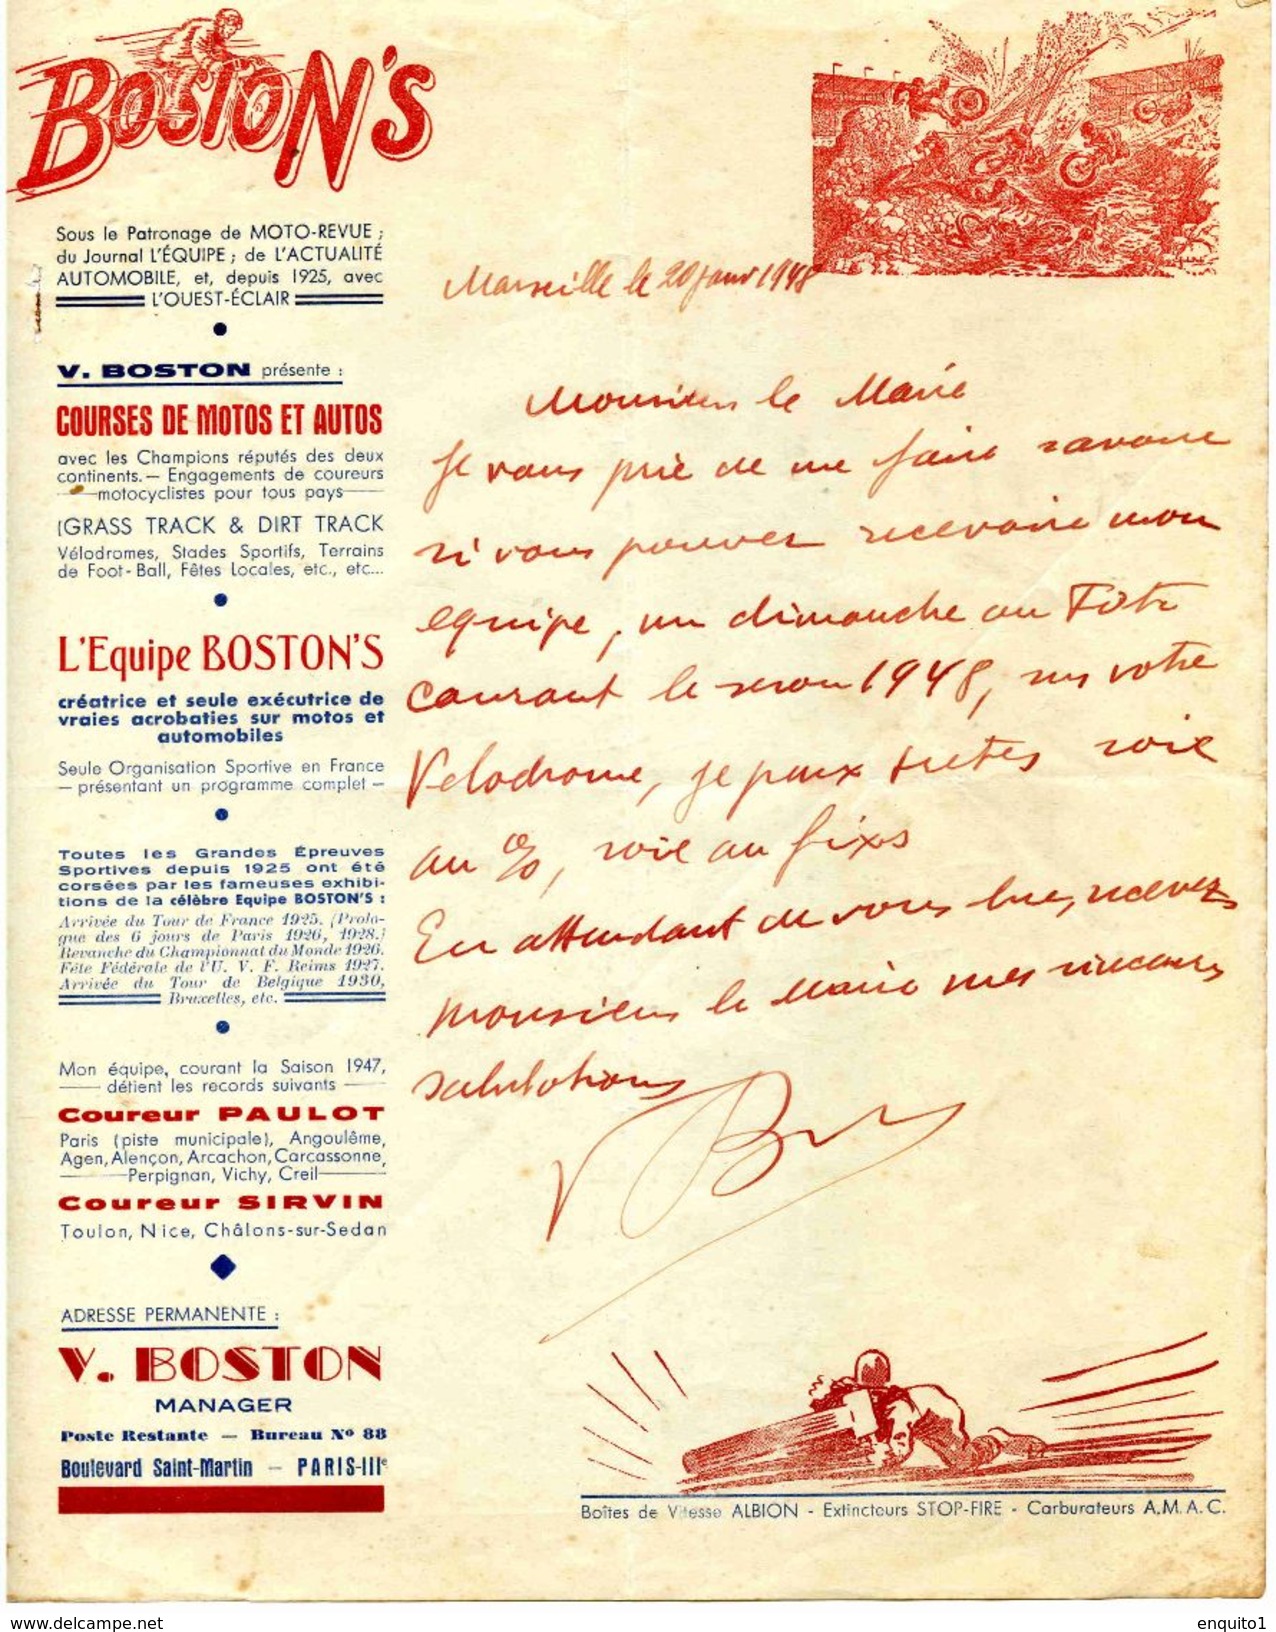 BOSTON'S
Sous le Patronage de MOTO-REVUE ;
du Journal L'ÉQUIPE ; de L'ACTUALITÉ
AUTOMOBILE, et, depuis 1925, avec
L'OUEST-ÉCLAIR
V. BOSTON présente :
COURSES DE MOTOS ET AUTOS
avec les Champions réputés des deux
continents. — Engagements de coureurs
motocyclistes pour tous pays
(GRASS TRACK & DIRT TRACK
Vélodromes, Stades Sportifs, Terrains
de Foot-Ball, Fêtes Locales, etc., etc...
L'Equipe BOSTON'S
créatrice et seule exécutrice de
vraies acrobaties sur motos et
automobiles
Seule Organisation Sportive en France
— présentant un programme complet —
Toutes les Grandes Épreuves
Sportives depuis 1925 ont été
corsées par les fameuses exhibi-
tions de la célèbre Equipe BOSTON'S :
Arrivée du Tour de France 1925. (Prolo-
gue des 6 jours de Paris 1926, 1928.)
Revanche du Championnat du Monde 1926.
Fête Fédérale de l'U. V. F. Reims 1927.
Arrivée du Tour de Belgique 1930,
Bruxelles, etc.
Mon équipe, courant la Saison 1947,
détient les records suivants
Coureur PAULOT
Paris (piste municipale), Angoulême,
Agen, Alençon, Arcachon, Carcassonne,
Perpignan, Vichy, Creil
Coureur SIRVIN
Toulon, Nice, Châlons-sur-Sedan
ADRESSE PERMANENTE :
V. BOSTON
MANAGER
Poste Restante — Bureau Nº 88
Boulevard Saint-Martin — PARIS-IIIe
Marseille le 20 janv 1948
Monsieur le Maire
Je vous prie de me faire savoire
si vous pouvez recevoire mon
equipe, un dimanche ou Fête
courant le seson 1948, sur votre
Velodrome, je peux tretes soie
au %, soie au fixs
En attendant de vous lire, recevez
Monsieur le Maire mes sinceurs
salutations
Boîtes de Vitesse ALBION - Extincteurs STOP-FIRE - Carburateurs A.M.A.C.
www.delcampe.net
enquito1